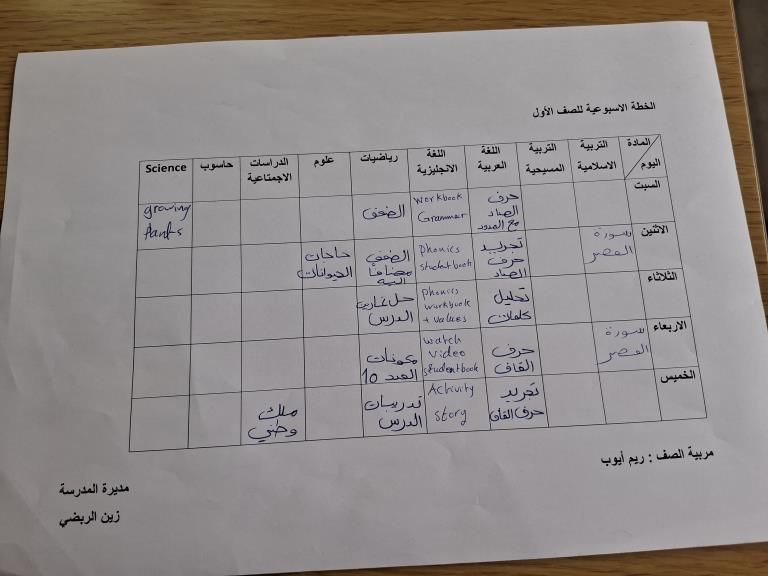 الخطة الاسبوعية للصف الأول
المادة
اليوم
التربية
الاسلامية
التربية
المسيحية
اللغة
العربية
اللغة
الانجليزية
رياضيات
علوم
الدراسات
الاجتماعية
حاسوب
Science
السبت
حرف
الصاد
مع المدود
Workbook
Grammar
الضعف
growing
الاثنين
سورة
العصر
تجريد
حرف
الصاد
Phonics
studentbook
الضعف
مضافا
اليه
حاجات
الحيوانات
الثلاثاء
تحليل
كلمات
Phonics
workbook
+ values
حل تمارين
الدرس
الاربعاء
سورة
العصر
حرف
القاف
watch
video
studentbook
مكونات
العدد 10
الخميس
تجريد
حرف القاف
Activity
story
تدريبات
الدرس
ملك
وطني
مربية الصف : ريم أيوب
مديرة المدرسة
زين الربضي